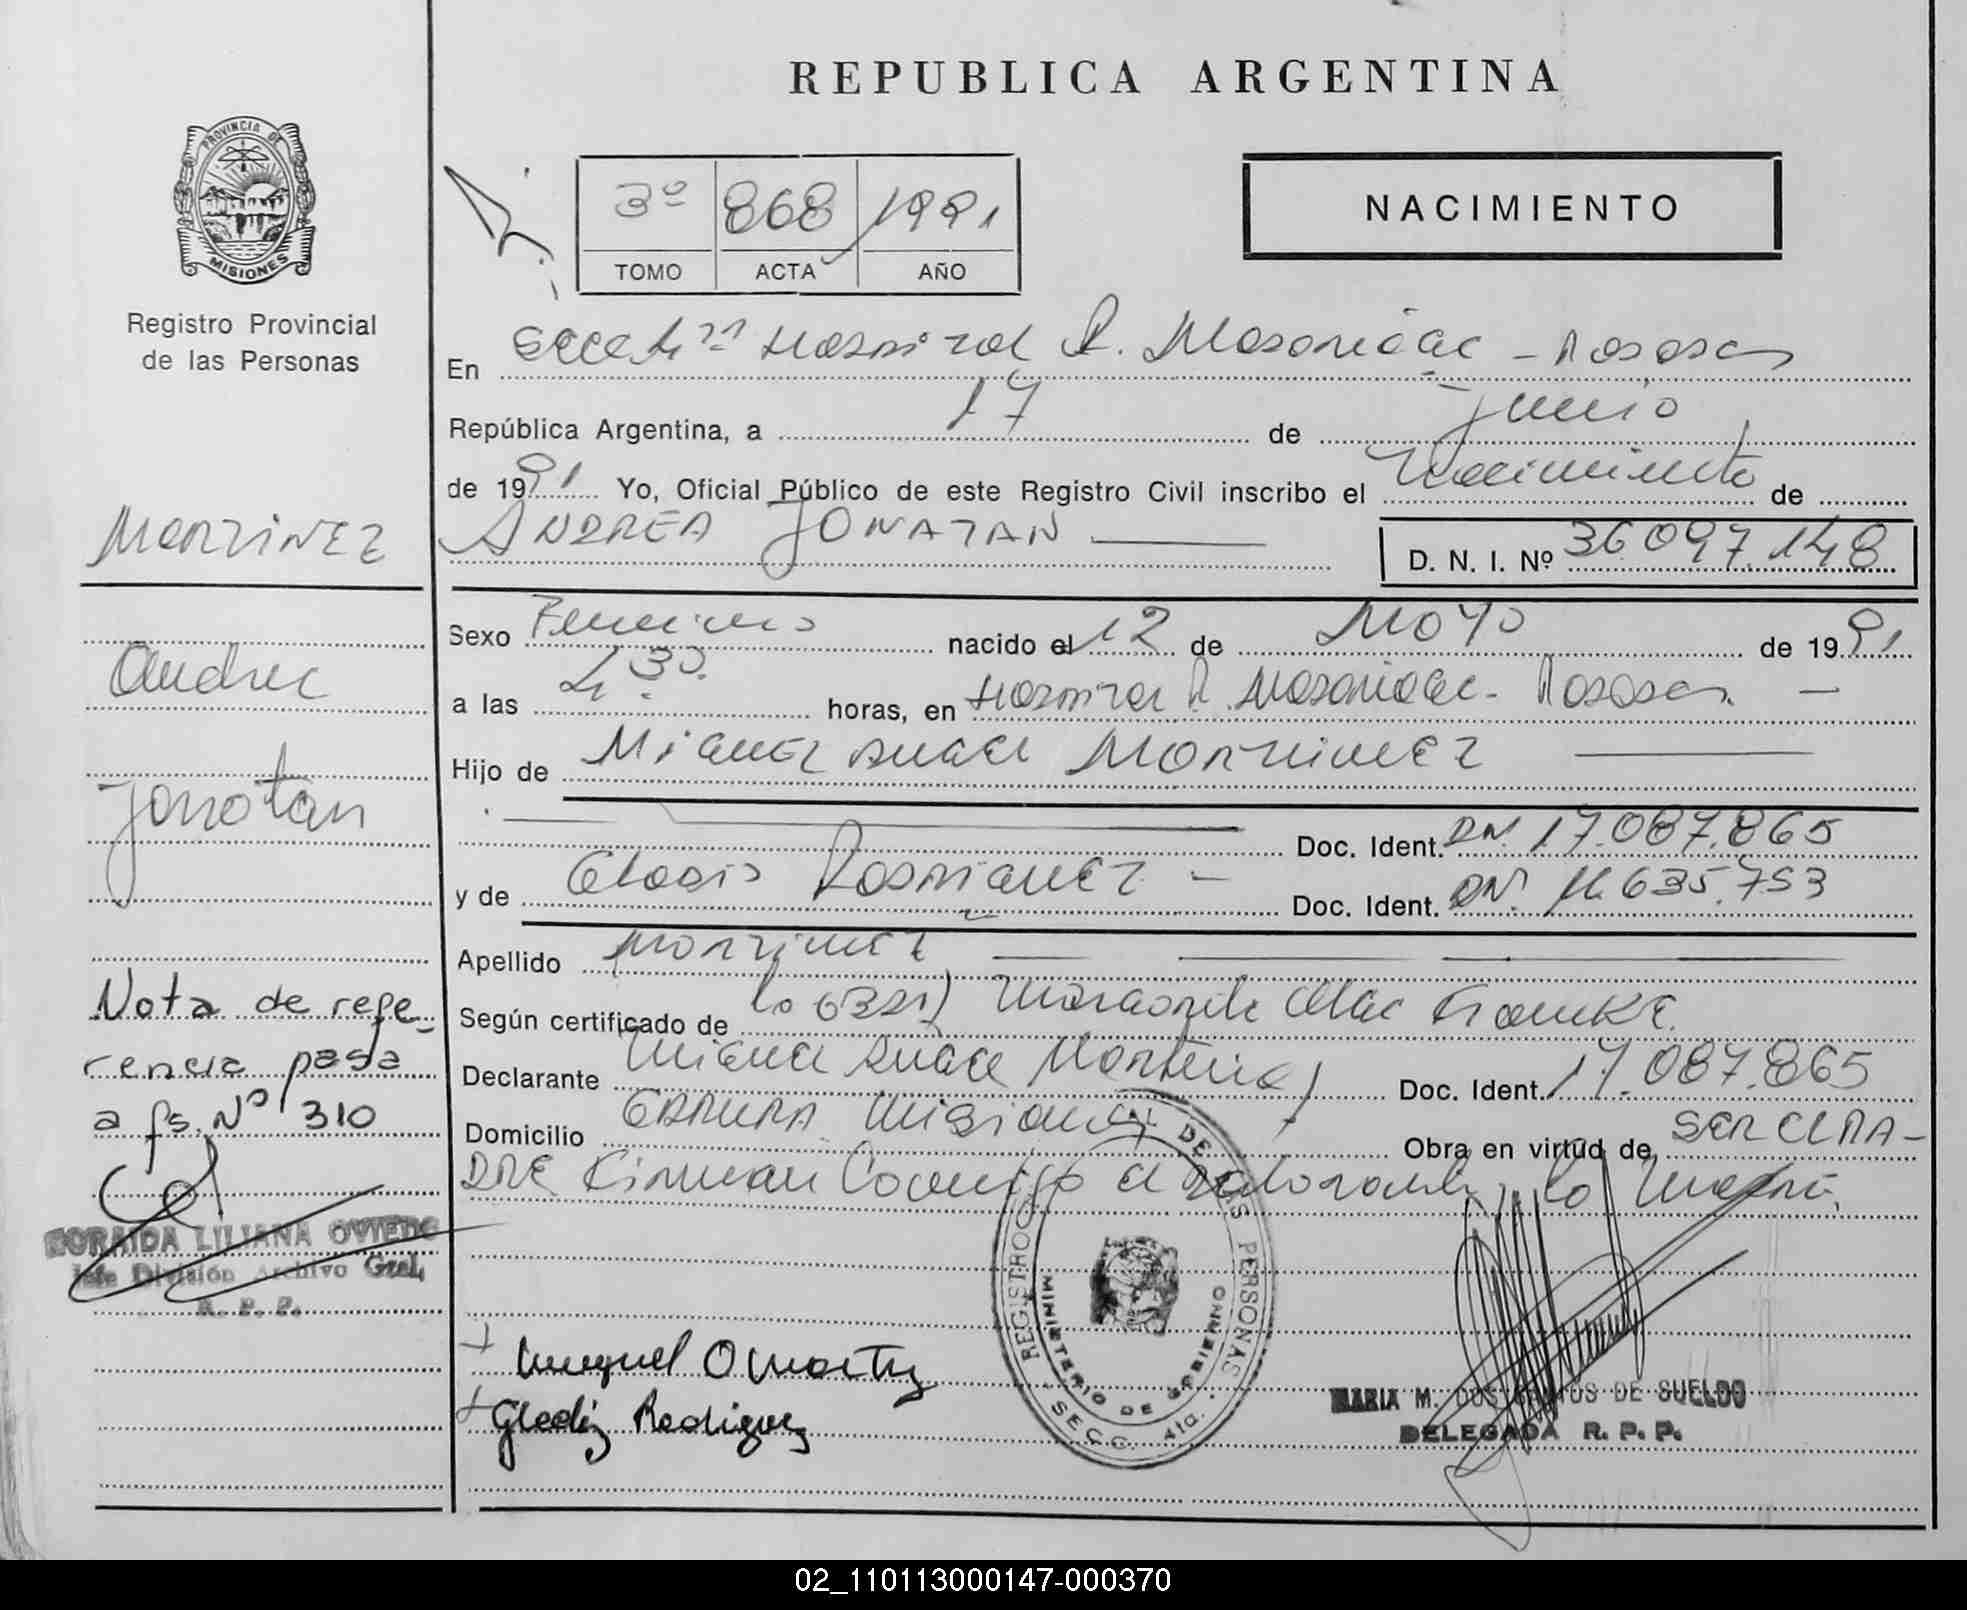 REPUBLICA ARGENTINA
PROVINCIA DE
MISIONES
Registro Provincial
de las Personas
3º 868 1991
TOMO ACTA AÑO
NACIMIENTO
En Hospital R. - Posadas
República Argentina, a 17 de Junio
de 1991 Yo, Oficial Público de este Registro Civil inscribo el Nacimiento de
ANDREA JONATAN
D. N. I. Nº 36.097.148
Sexo Femenino nacido el 12 de MAYO de 1991
a las 4.30. horas, en Hospital R. - Posadas -
Hijo de Miguel Angel Martinez
Doc. Ident. DN. 17.087.865
y de Rodriguez - Doc. Ident. DN.
Apellido Martinez
Según certificado de
Declarante Miguel Angel Martinez Doc. Ident. 17.087.865
Domicilio Misiones Obra en virtud de SER EL PA-
DRE Firman el la madre.
MARTINEZ
Andrea
Jonatan
Nota de refe-
rencia pasa
a fs. Nº 310
ZORAIDA LILIANA OVIEDO
Jefe División Archivo Gral.
R. P. P.
Miguel
Rodriguez
REGISTRO DE LAS PERSONAS
MINISTERIO DE GOBIERNO
SECC. 4ta.
MARIA M. DOS SANTOS DE SUELDO
DELEGADA R. P. P.
02_110113000147-000370